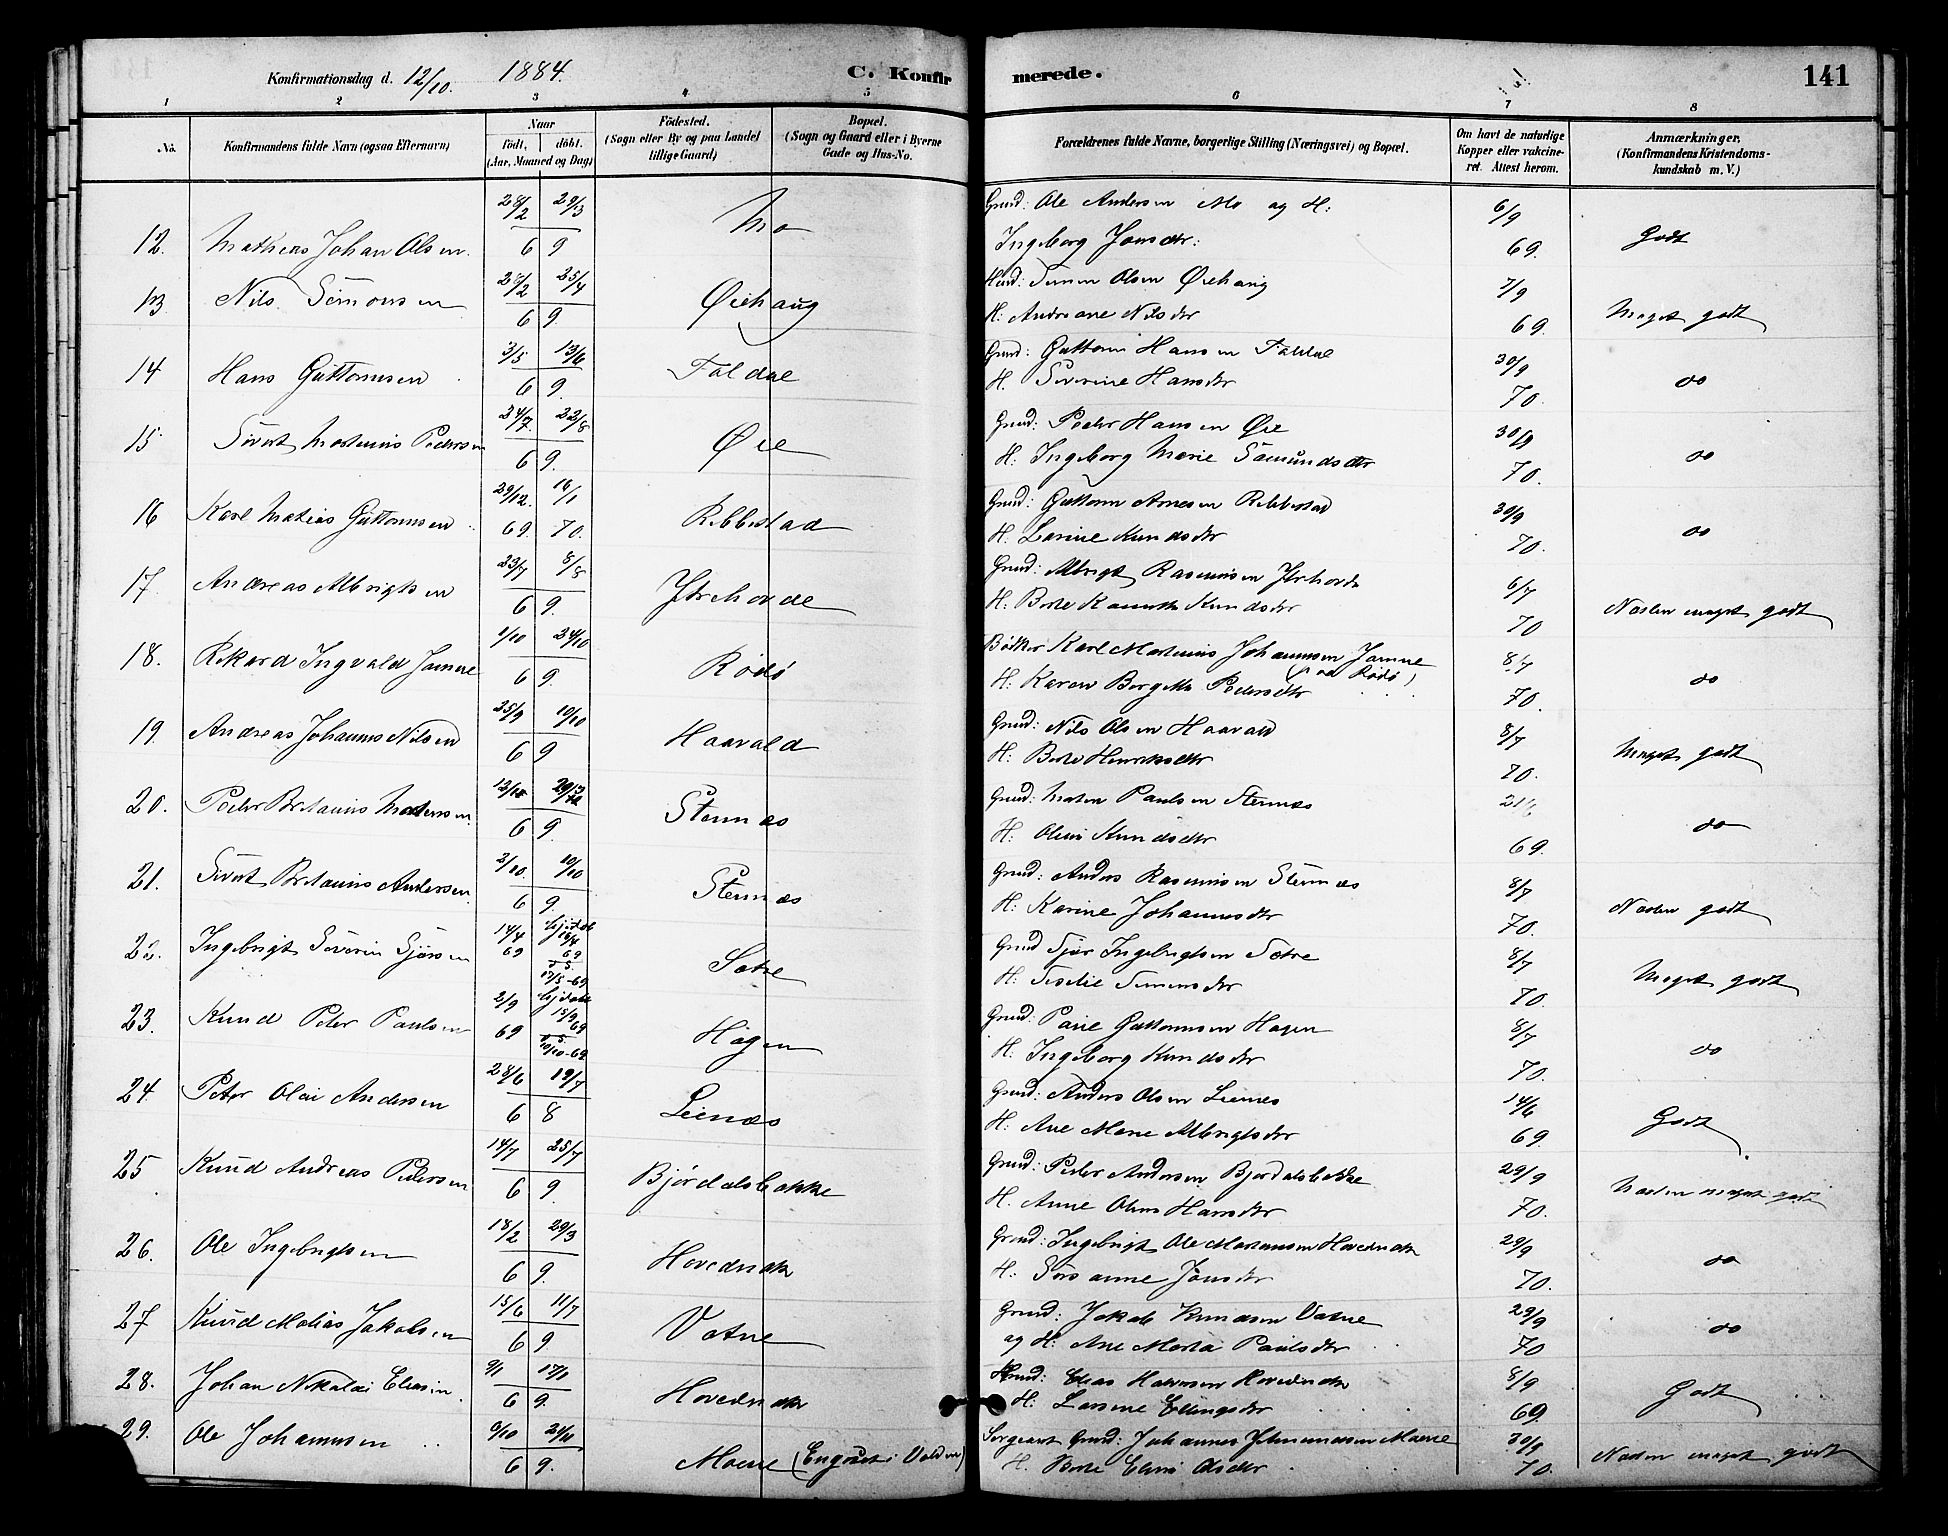 Konfirmationsdag d. 12/10. 1884. C. Konfirmerede. 141
1 2 3 4 5 6 7 8
No. Konfirmandens fulde Navn (ogsaa Efternavn) Naar født, døbt. (Aar, Maaned og Dag) Fødested. (Sogn eller By og paa Landet tillige Gaard) Bopæl. (Sogn og Gaard eller i Byerne Gade og Hus-No. Forældrenes fulde Navne, borgerlige Stilling (Næringsvei) og Bopæl. Om havt de naturlige Kopper eller vakcineret. Attest herom. Anmærkninger. (Konfirmandens Kristendomskundskab m. V.)
12. Mathias Johan Olsen. 28/2 29/3 69 Mo Grud: Ole Andersen Mo og H: Ingeborg Jonsdtr: 6/9 69. Godt
13 Nils Simonsen 28/2 25/4 69. Øiehaug Husd: Simen Olsen Øiehaug H: Andreane Nilsdtr 7/9 69. Meget godt
14 Hans Guttormsen 3/5 13/6 69. Foldal Grud: Guttorm Hansen Foldal H. Severine Hansdtr 30/9 70. do
15 Sivert Martinus Pedersen 24/7. 22/8 69. Øie Grud: Peder Hansen Øie H: Ingeborg Marie Samundsdtr 30/9 70. do
16 Karl Matias Guttormsen 29/12. 69. 16/1 70. Ribbestad Grud: Guttorm Arnesen Ribbestad H. Larine Knudsdtr 30/9 70. do
17. Andreas Albrigtsen 23/7 8/8 69. Ytrehovde Grud: Albrigt Rasmusen Ytrehovde H: Berte Knudsdtr 6/7 70 Næsten meget godt
18. Rikard Ingvald Jamne 1/10 24/10 69. Rødø Bødker Karl Martinus Johannesen Jamne (paa Rødø) H: Karen Bergitte Pedersdtr 8/7 70. do
19. Andreas Johannes Nilsen 25/9 10/10 69 Haavald Grud: Nils Olsen Haavald H. Berte Henriksdtr 8/7 70. Meget godt
20. Peder Bertinus Matensen. 12/10 69. Stennæs Grud: Maten Paulsen Stennæs H: Oline Knudsdtr 69. do
21. Sivert Bertinus Andersen. 2/10. 10/10 69. Stennæs Grud: Anders Rasmusen Stennæs H: Karine Johannesdtr 8/7 70. Næsten godt
22. Ingebrigt Severin Sjursen 14/4 69 hjdøbt 16/4 69 17/5-69 Sætre Grud Sjur Ingebrigtsen Sætre H. Sesilie Simensdtr 8/7 70. Meget godt
23. Knud Peter Paulsen 2/9 69 hjdøbt 15/9 69 10/10-69 Hagen Grud: Paul Guttormsen Hagen H: Ingeborg Knudsdtr 8/7 70. do
24 Peter Olai Andersen 28/6 19/7 68 Leinæs Grud: Anders Olsen Leinæs H: Ane Marie Albrigtsdtr 14/6 69. Godt
25 Knud Andreas Pedersen 14/7 25/7 69. Bjørdalsbakke Grud: Peder Andersen Bjørdalsbakke H: Anne Oline Hansdtr 29/9 70. Næsten meget godt
26. Ole Ingebrigtsen 18/2 29/3 69. Hovednak Grud: Ingebrigt Ole Martinusen Hovednak H: Jonsdtr 29/9 70. do
27 Knud Matias Jakobsen 15/6 11/7 69 Vatne Grud: Jakob Knudsen Vatne og H: Ane Marta Paulsdtr 29/9 70 do
28. Johan Nikolai Eliasen. 9/1 17/1 69. Hovednak Grud: Elias Hovednak H: Larsine Ellingsdtr 8/9 69. Godt
29. Ole Johannesen 9/10 69. Moene (Engeset i Volden) Sergeant Grud: Johannes Moene H. Berte Eline Olsdtr 30/9 70. Næsten meget godt